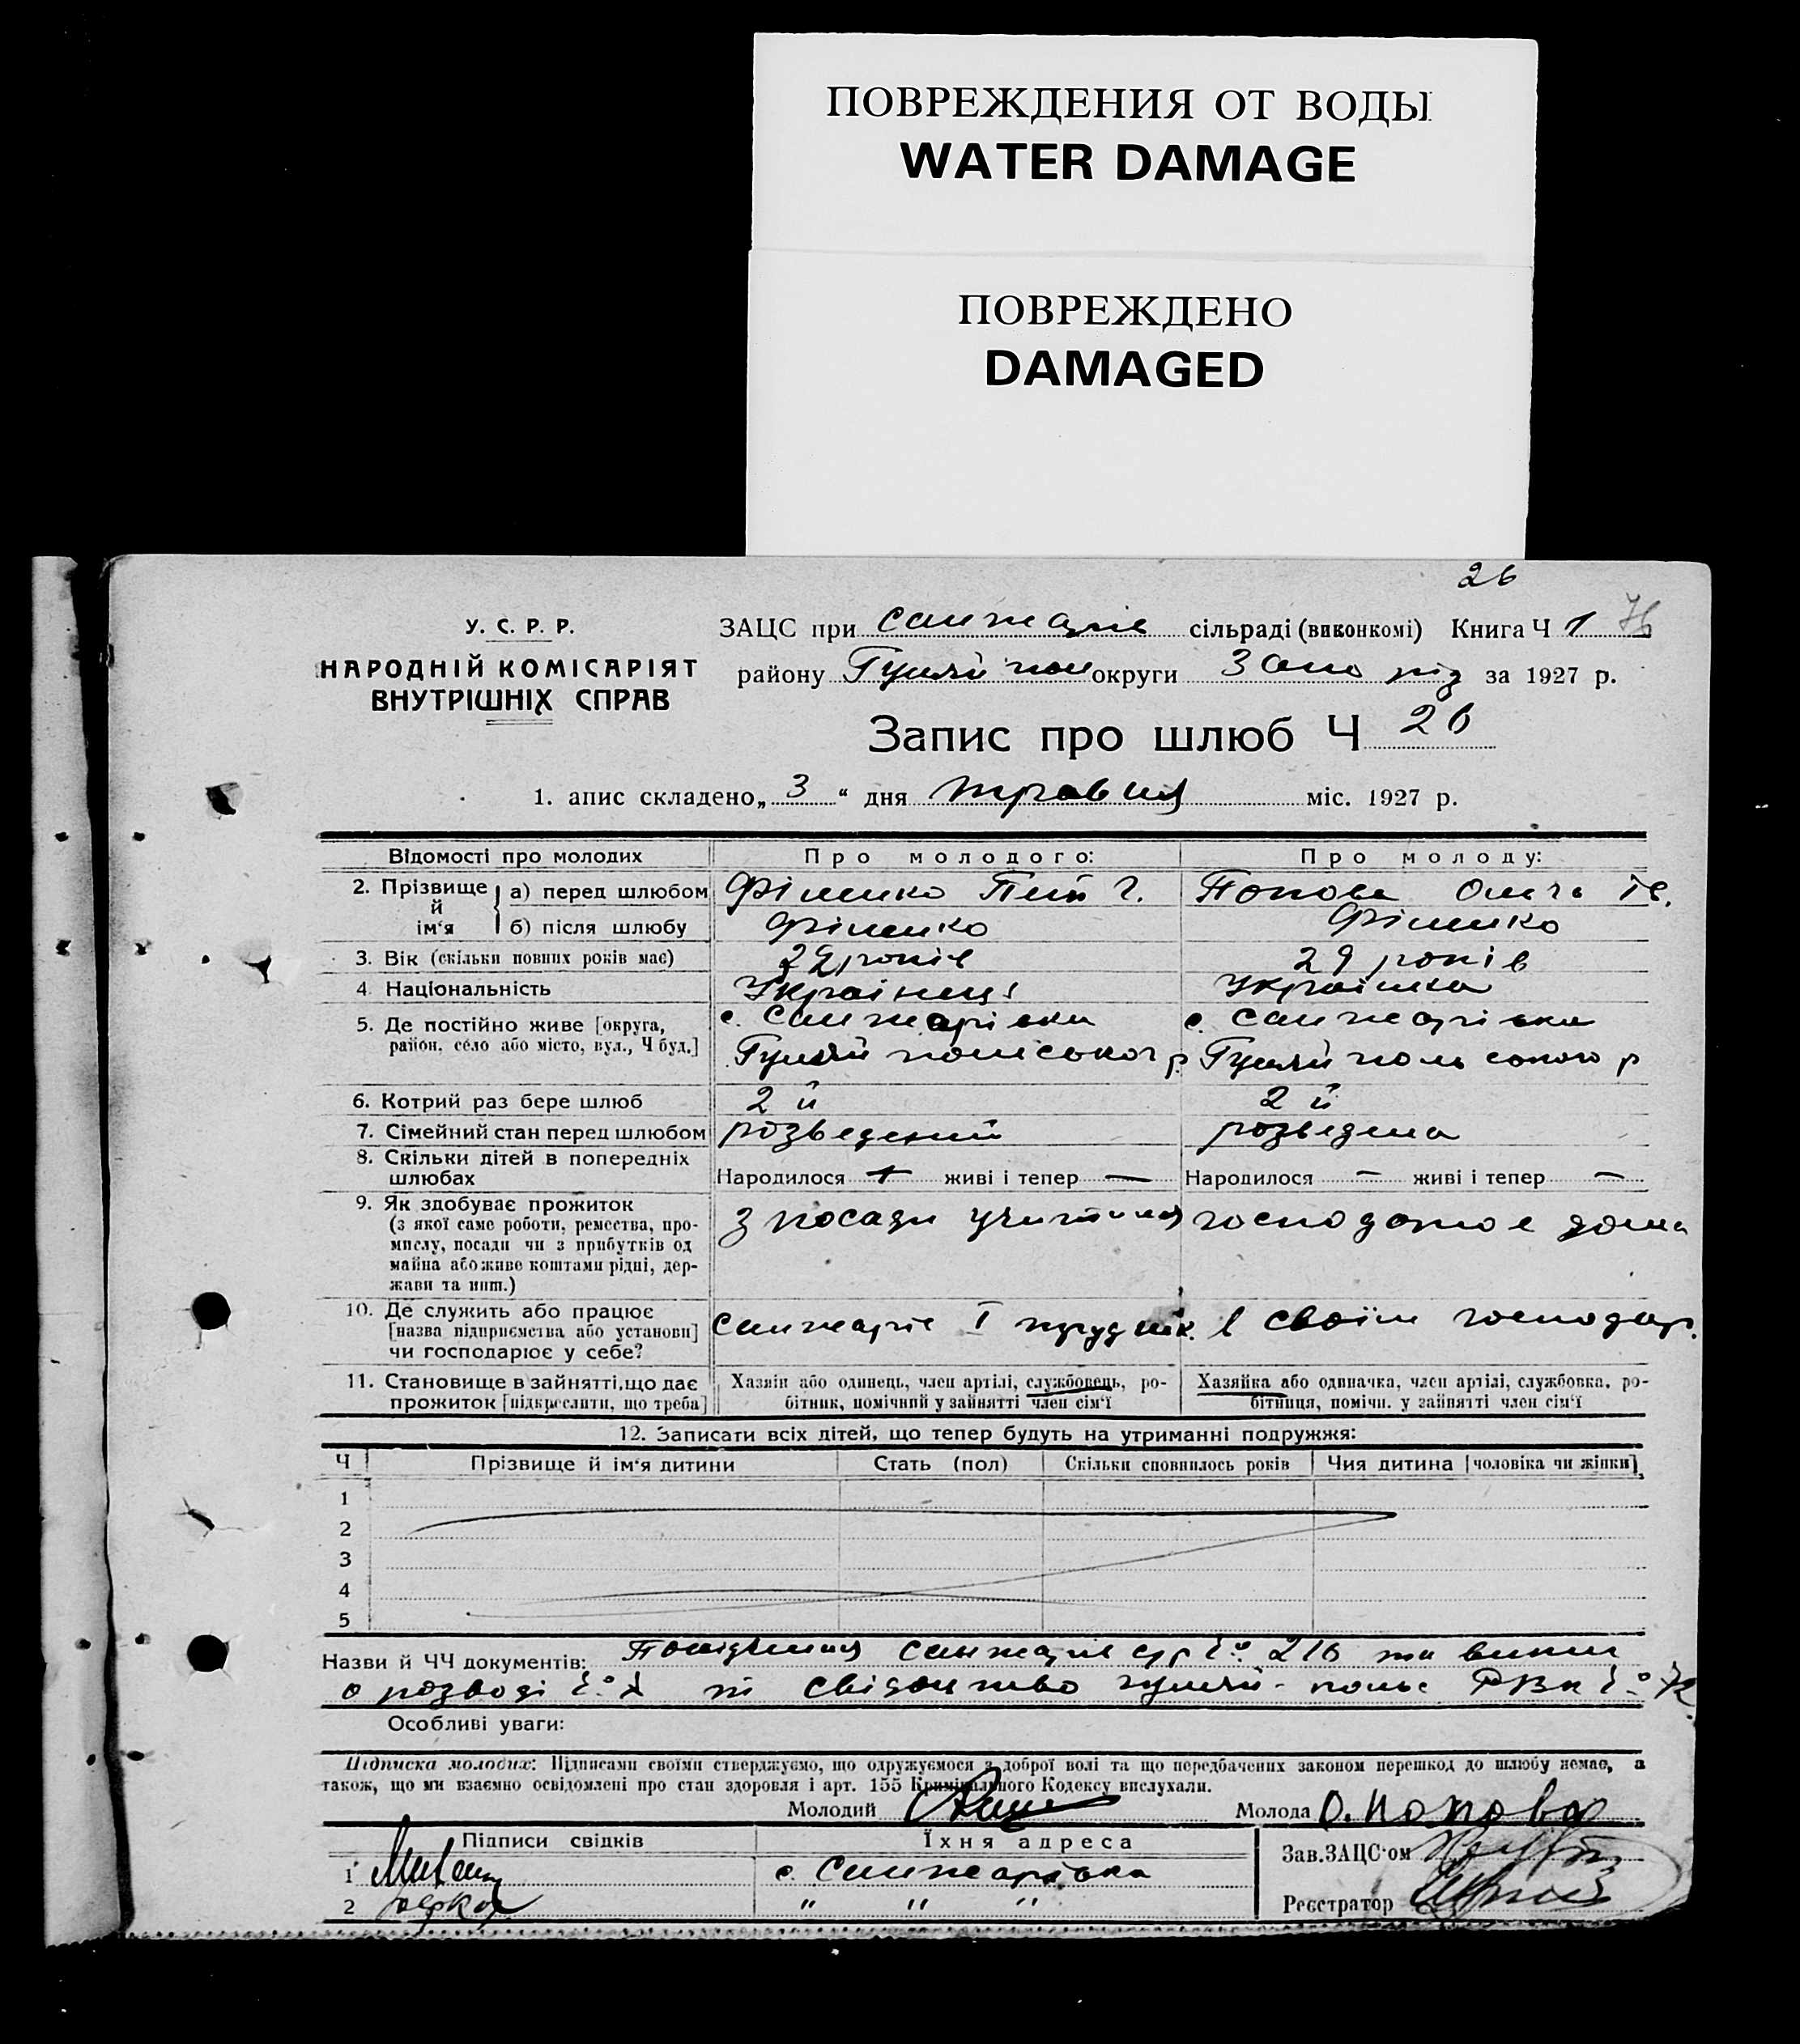 ПОВРЕЖДЕНИЯ ОТ ВОДЫ
WATER DAMAGE
ПОВРЕЖДЕНО
DAMAGED
26
У. С. Р. Р.
НАРОДНІЙ КОМІСАРІЯТ
ВНУТРІШНІХ СПРАВ
ЗАЦС при Санжарів сільраді (виконкомі) Книга Ч 1 76
району Гуляй пол округи Запоріз за 1927 р.
Запис про шлюб Ч 26
1. апис складено „ 3 “ дня травня міс. 1927 р.
Відомості про молодих Про молодого: Про молоду:
2. Прізвище й ім‘я а) перед шлюбом Фіненко Г. Попова Ольга
б) після шлюбу Фіненко Фіненко
3. Вік (скільки повних років має) років 29 років
4. Національність Українець Українка
5. Де постійно живе [округа, с. Санжарівка с. Санжарівка
район, село або місто, вул., Ч буд.] Гуляй польського р. Гуляй поль ського р
6. Котрий раз бере шлюб 2 й 2 й
7. Сімейний стан перед шлюбом розведений розведена
8. Скільки дітей в попередніх
шлюбах Народилося живі і тепер — Народилося — живі і тепер —
9. Як здобуває прожиток
(з якої саме роботи, ремества, про- з посади учителя господарює дома
мислу, посади чи з прибутків од
майна або живе коштами рідні, дер-
жави та инш.)
10. Де служить або працює
[назва підприємства або установи] Санжарів І трудшк. в своїм господар.
чи господарює у себе?
11. Становище в зайнятті, що дає Хазяїн або одинець, член артілі, службовець, ро- Хазяйка або одиначка, член артілі, службовка, ро-
прожиток [підкреслити, що треба] бітник, помічний у зайнятті член сім‘ї бітниця, помічн. у зайнятті член сім‘ї
12. Записати всіх дітей, що тепер будуть на утриманні подружжя:
Ч Прізвище й ім‘я дитини Стать (пол) Скільки сповнилось років Чия дитина [чоловіка чи жінки]
1
2
3
4
5
Назви й ЧЧ документів: Санжарів 216 та
о розводі свідоцтво гуляй-польс РВК
Особливі уваги:
Підписка молодих: Підписами своїми стверджуємо, що одружуємося з доброї волі та що передбачених законом перешкод до шлюбу немає, а
також, що ми взаємно освідомлені про стан здоровля і арт. 155 Кримінального Кодексу вислухали.
Молодий Молода О. Попова
Підписи свідків Їхня адреса Зав. ЗАЦС‘ом
1 с. Санжарівка
2 " " " Реєстратор